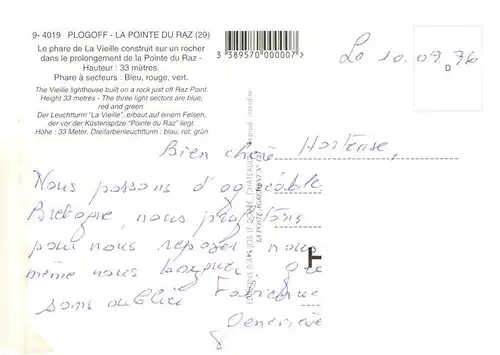 9- 4019 PLOGOFF - LA POINTE DU RAZ (29)
Le phare de La Vieille construit sur un rocher
dans le prolongement de la Pointe du Raz -
Hauteur : 33 mètres.
Phare à secteurs : Bleu, rouge, vert.
The Vieille lighthouse built on a rock just off Raz Point.
Height 33 metres - The three light sectors are blue,
red and green.
Der Leuchtturm "La Vieille". erbaut auf einem Felsen,
der vor der Küstenspitze "Pointe du Raz" liegt.
Höhe : 33 Meter. Dreifarbenleuchtturm : blau, rot, grün
3 389570 000007
Le 10.09.
D
Bien chère Hortense,
Nous passons d'agréable
Bretagne, nous profitons
pour nous reposer, nous
même nous
sans
Geneviève
ÉDITIONS D'ART JOS LE DOARÉ, CHÂTEAULIN